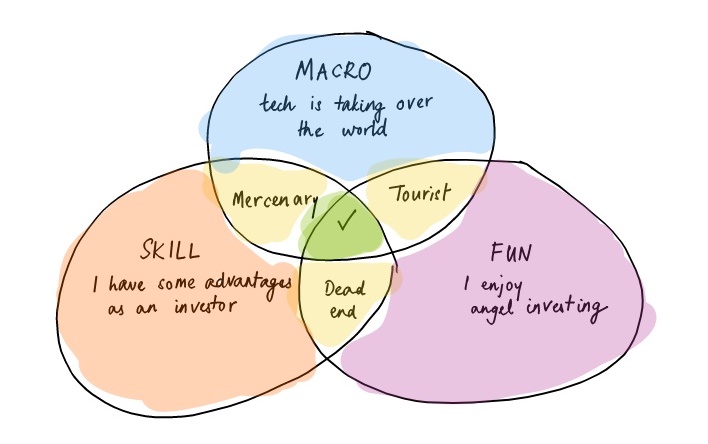 MACRO
tech is taking over
the world
Mercenary
Tourist
✓
SKILL
I have some advantages
as an investor
Dead
end
FUN
I enjoy
angel investing